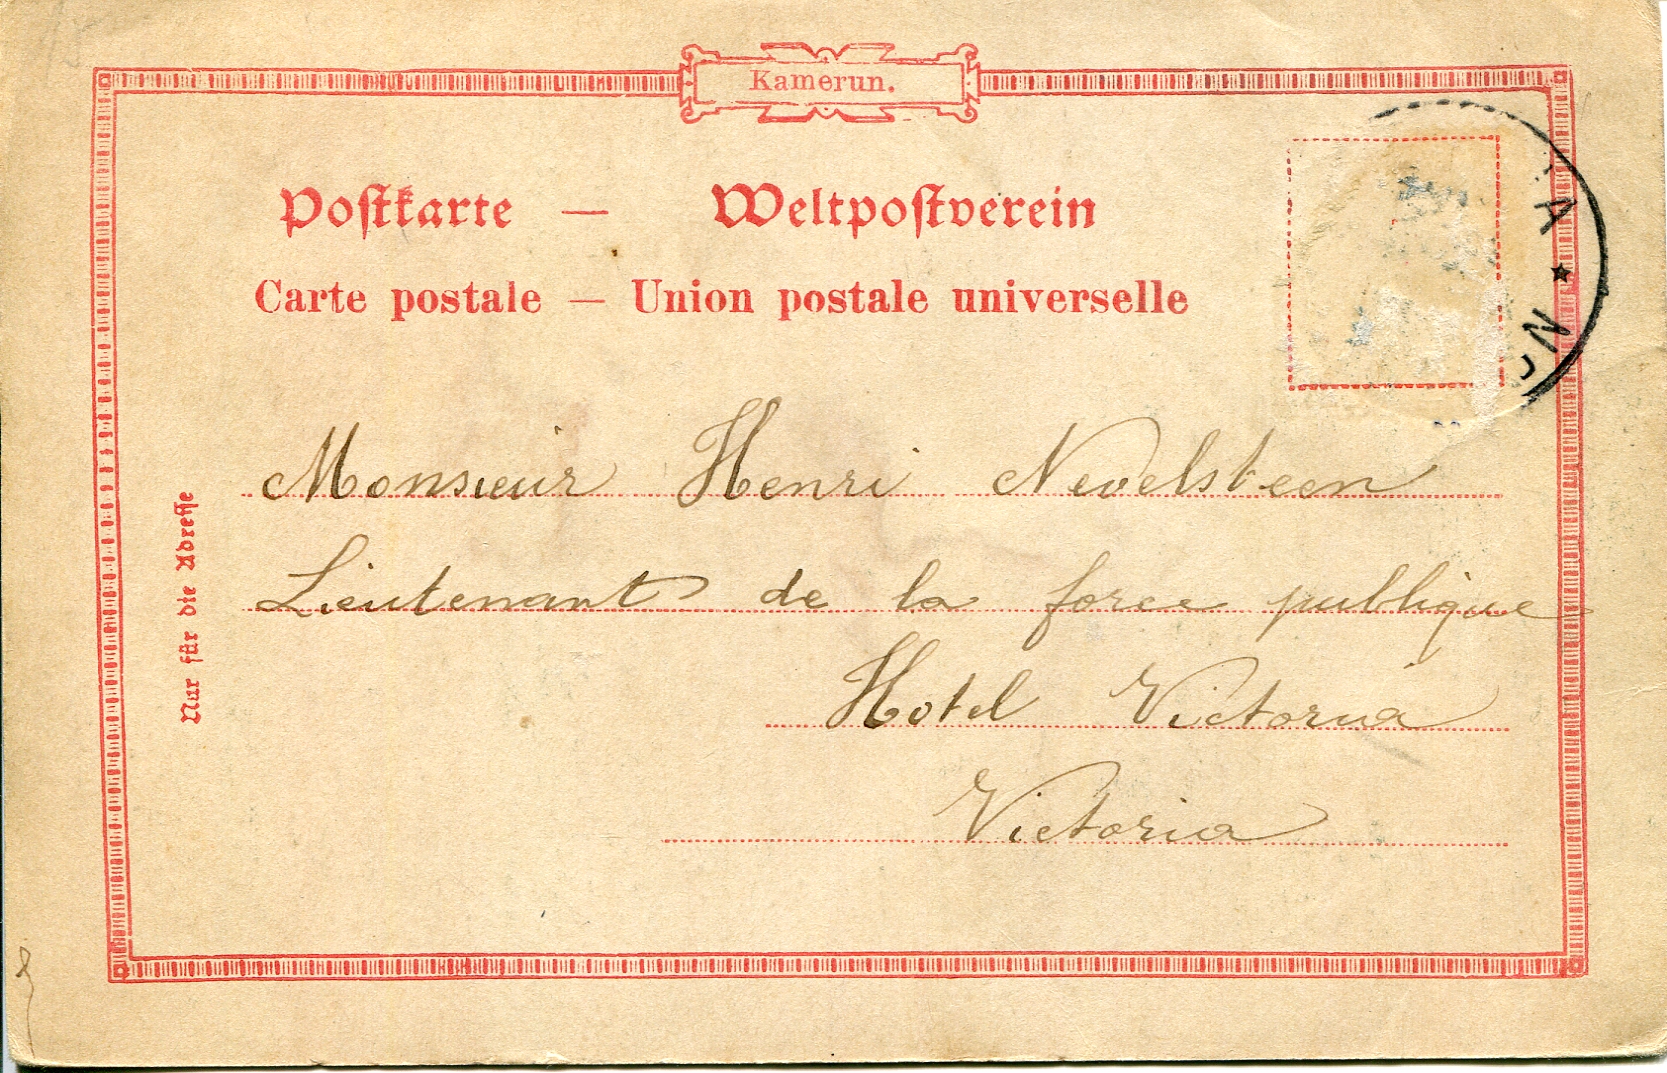 Kamerun.
Postkarte — Weltpostverein
Carte postale — Union postale universelle
A * N
Monsieur Henri Nevelsteen
Lieutenant de la force publique
Hotel Victoria
Victoria
Nur für die Adresse